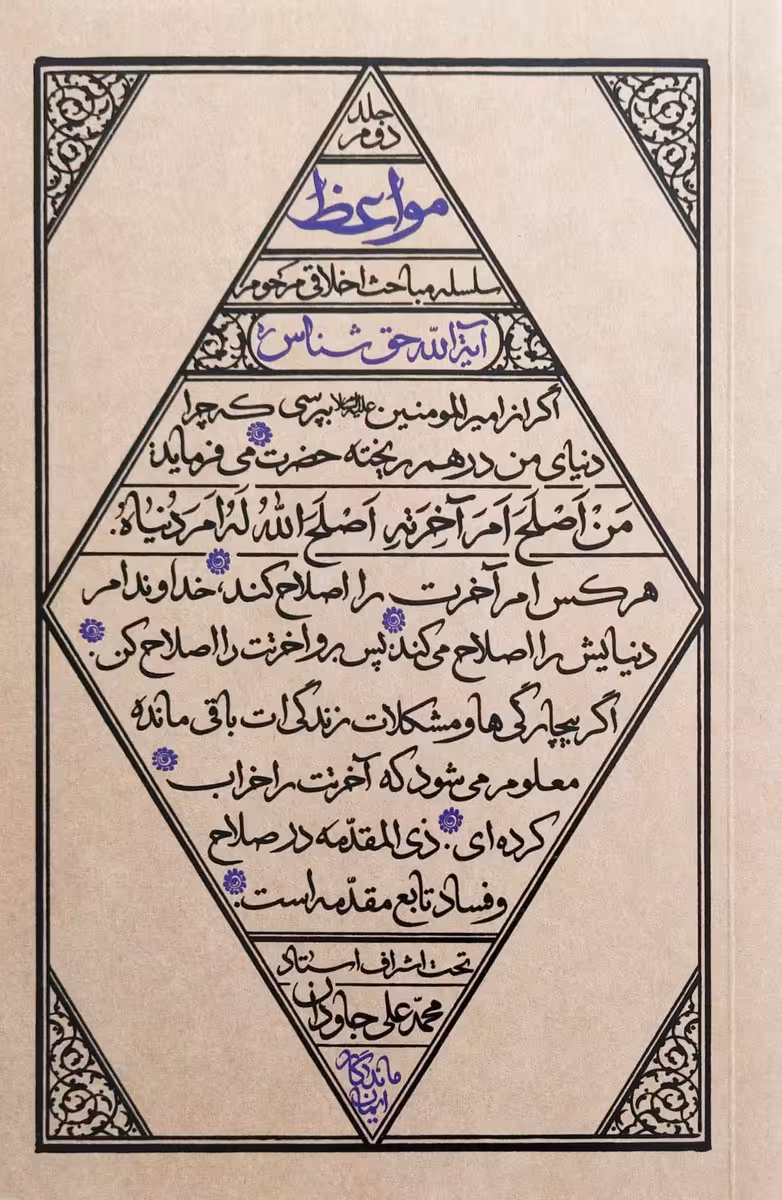 جلد
دوم
مواعظ
سلسله مباحث اخلاقی مرحوم
آیة الله حق شناس ره
اگر از امیرالمومنین علیه‌السلام بپرسی که چرا
دنیای من در هم ریخته حضرت می فرماید:
مَنْ اَصْلَحَ اَمرَ آخِرَتِهِ اَصْلَحَ اللهُ لَهُ اَمرَ دُنیاهُ.
هر کس امر آخرت را اصلاح کند، خداوند امر
دنیایش را اصلاح می کند؛ پس برو اخرتت را اصلاح کن.
اگر بیچارگی ها و مشکلات زندگی ات باقی مانده
معلوم می شود که آخرتت را خراب
کرده ای. ذی المقدّمه در صلاح
و فساد تابع مقدّمه است.
تحت اشراف استاد
محمّد علی جاودان
ماندگار
ایمان